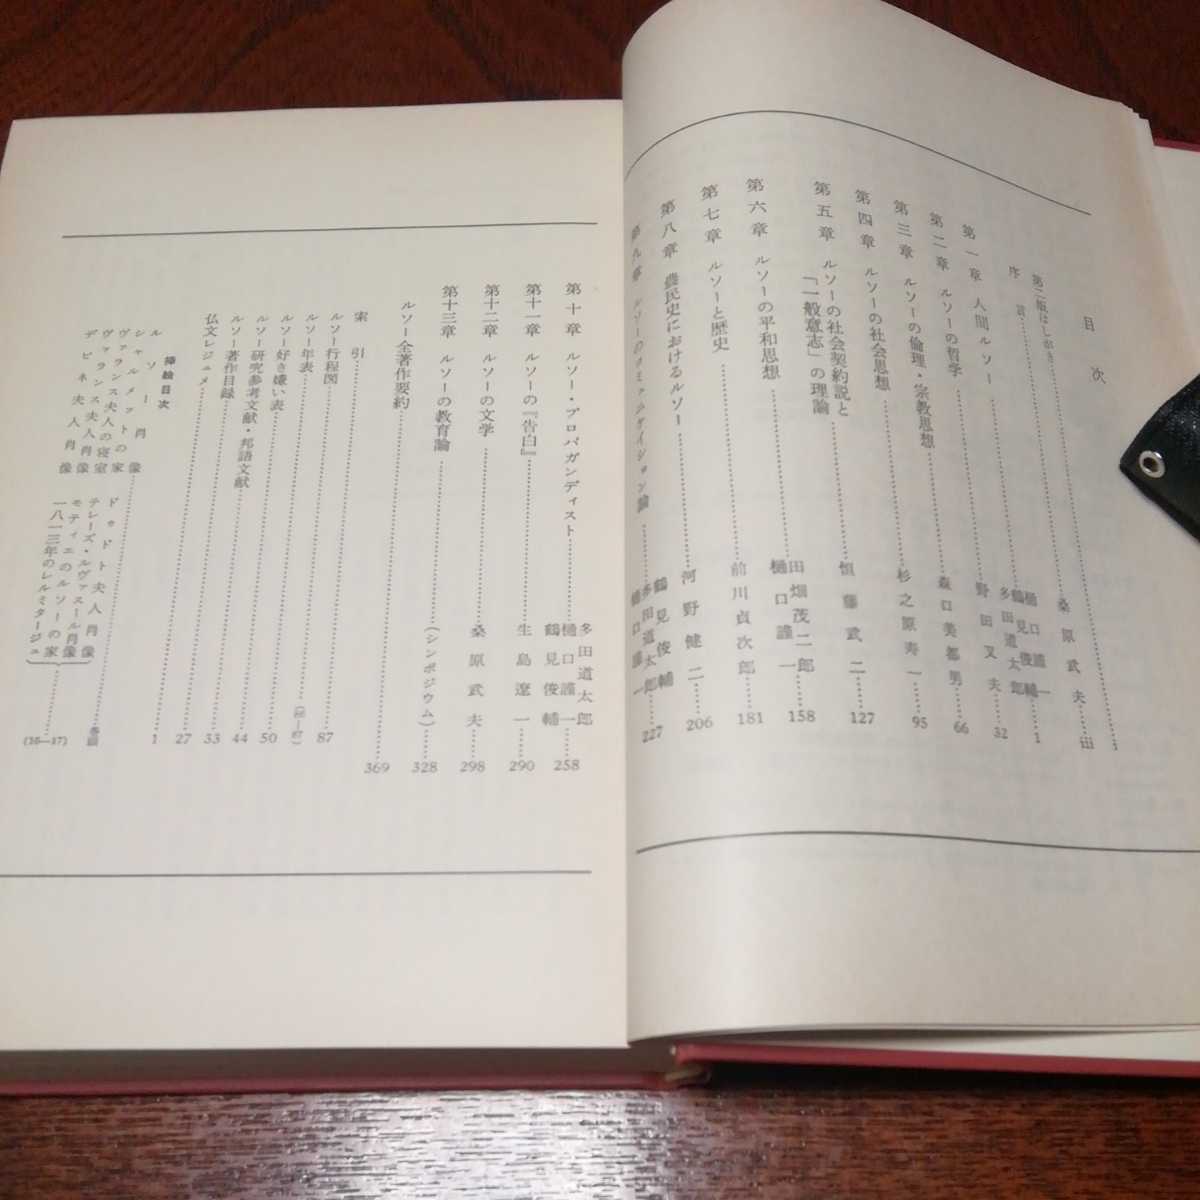 目次
第二版はしがき 桑原武夫 i
序言 樋口謹一 鶴見俊輔 多田道太郎 iii
第一章 人間ルソー 野田又夫 1
第二章 ルソーの哲学 森口美都男 32
第三章 ルソーの倫理・宗教思想 66
第四章 ルソーの社会思想 杉之原寿一 95
第五章 ルソーの社会契約説と「一般意志」の理論 恒藤武二 127
第六章 ルソーの平和思想 田畑茂二郎 樋口謹一 158
第七章 ルソーと歴史 前川貞次郎 181
第八章 農民史におけるルソー 河野健二 206
第九章 ルソーのコミュニケイション論 鶴見俊輔 多田道太郎 樋口謹一 227
第十章 ルソー・プロパガンディスト 多田道太郎 樋口謹一 鶴見俊輔 258
第十一章 ルソーの『告白』 生島遼一 290
第十二章 ルソーの文学 桑原武夫 298
第十三章 ルソーの教育論 (シンポジウム) 328
ルソー全著作要約 369
索引
ルソー行程図 87
ルソー年表
ルソー好き嫌い表 50
ルソー研究参考文献・邦語文献 44
ルソー著作目録 33
仏文レジュメ 27
1
挿絵目次
ルソー肖像 巻頭
シャルメットの家
ヴァランス夫人の寝室
ヴァランス夫人肖像
デピネ夫人肖像
ドゥドト夫人肖像
テレーズ・ルヴァスール肖像
モティエのルソーの家
一八一三年のレルミタージュ
(16—17)